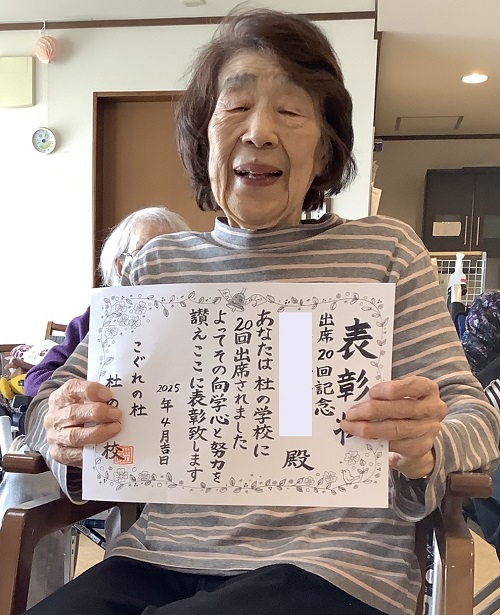 表彰状
出席20回記念
殿
あなたは杜の学校に
20回出席されました
よってその向学心と努力を
讃えここに表彰致します
2025年4月吉日
こぐれの杜
杜の 校